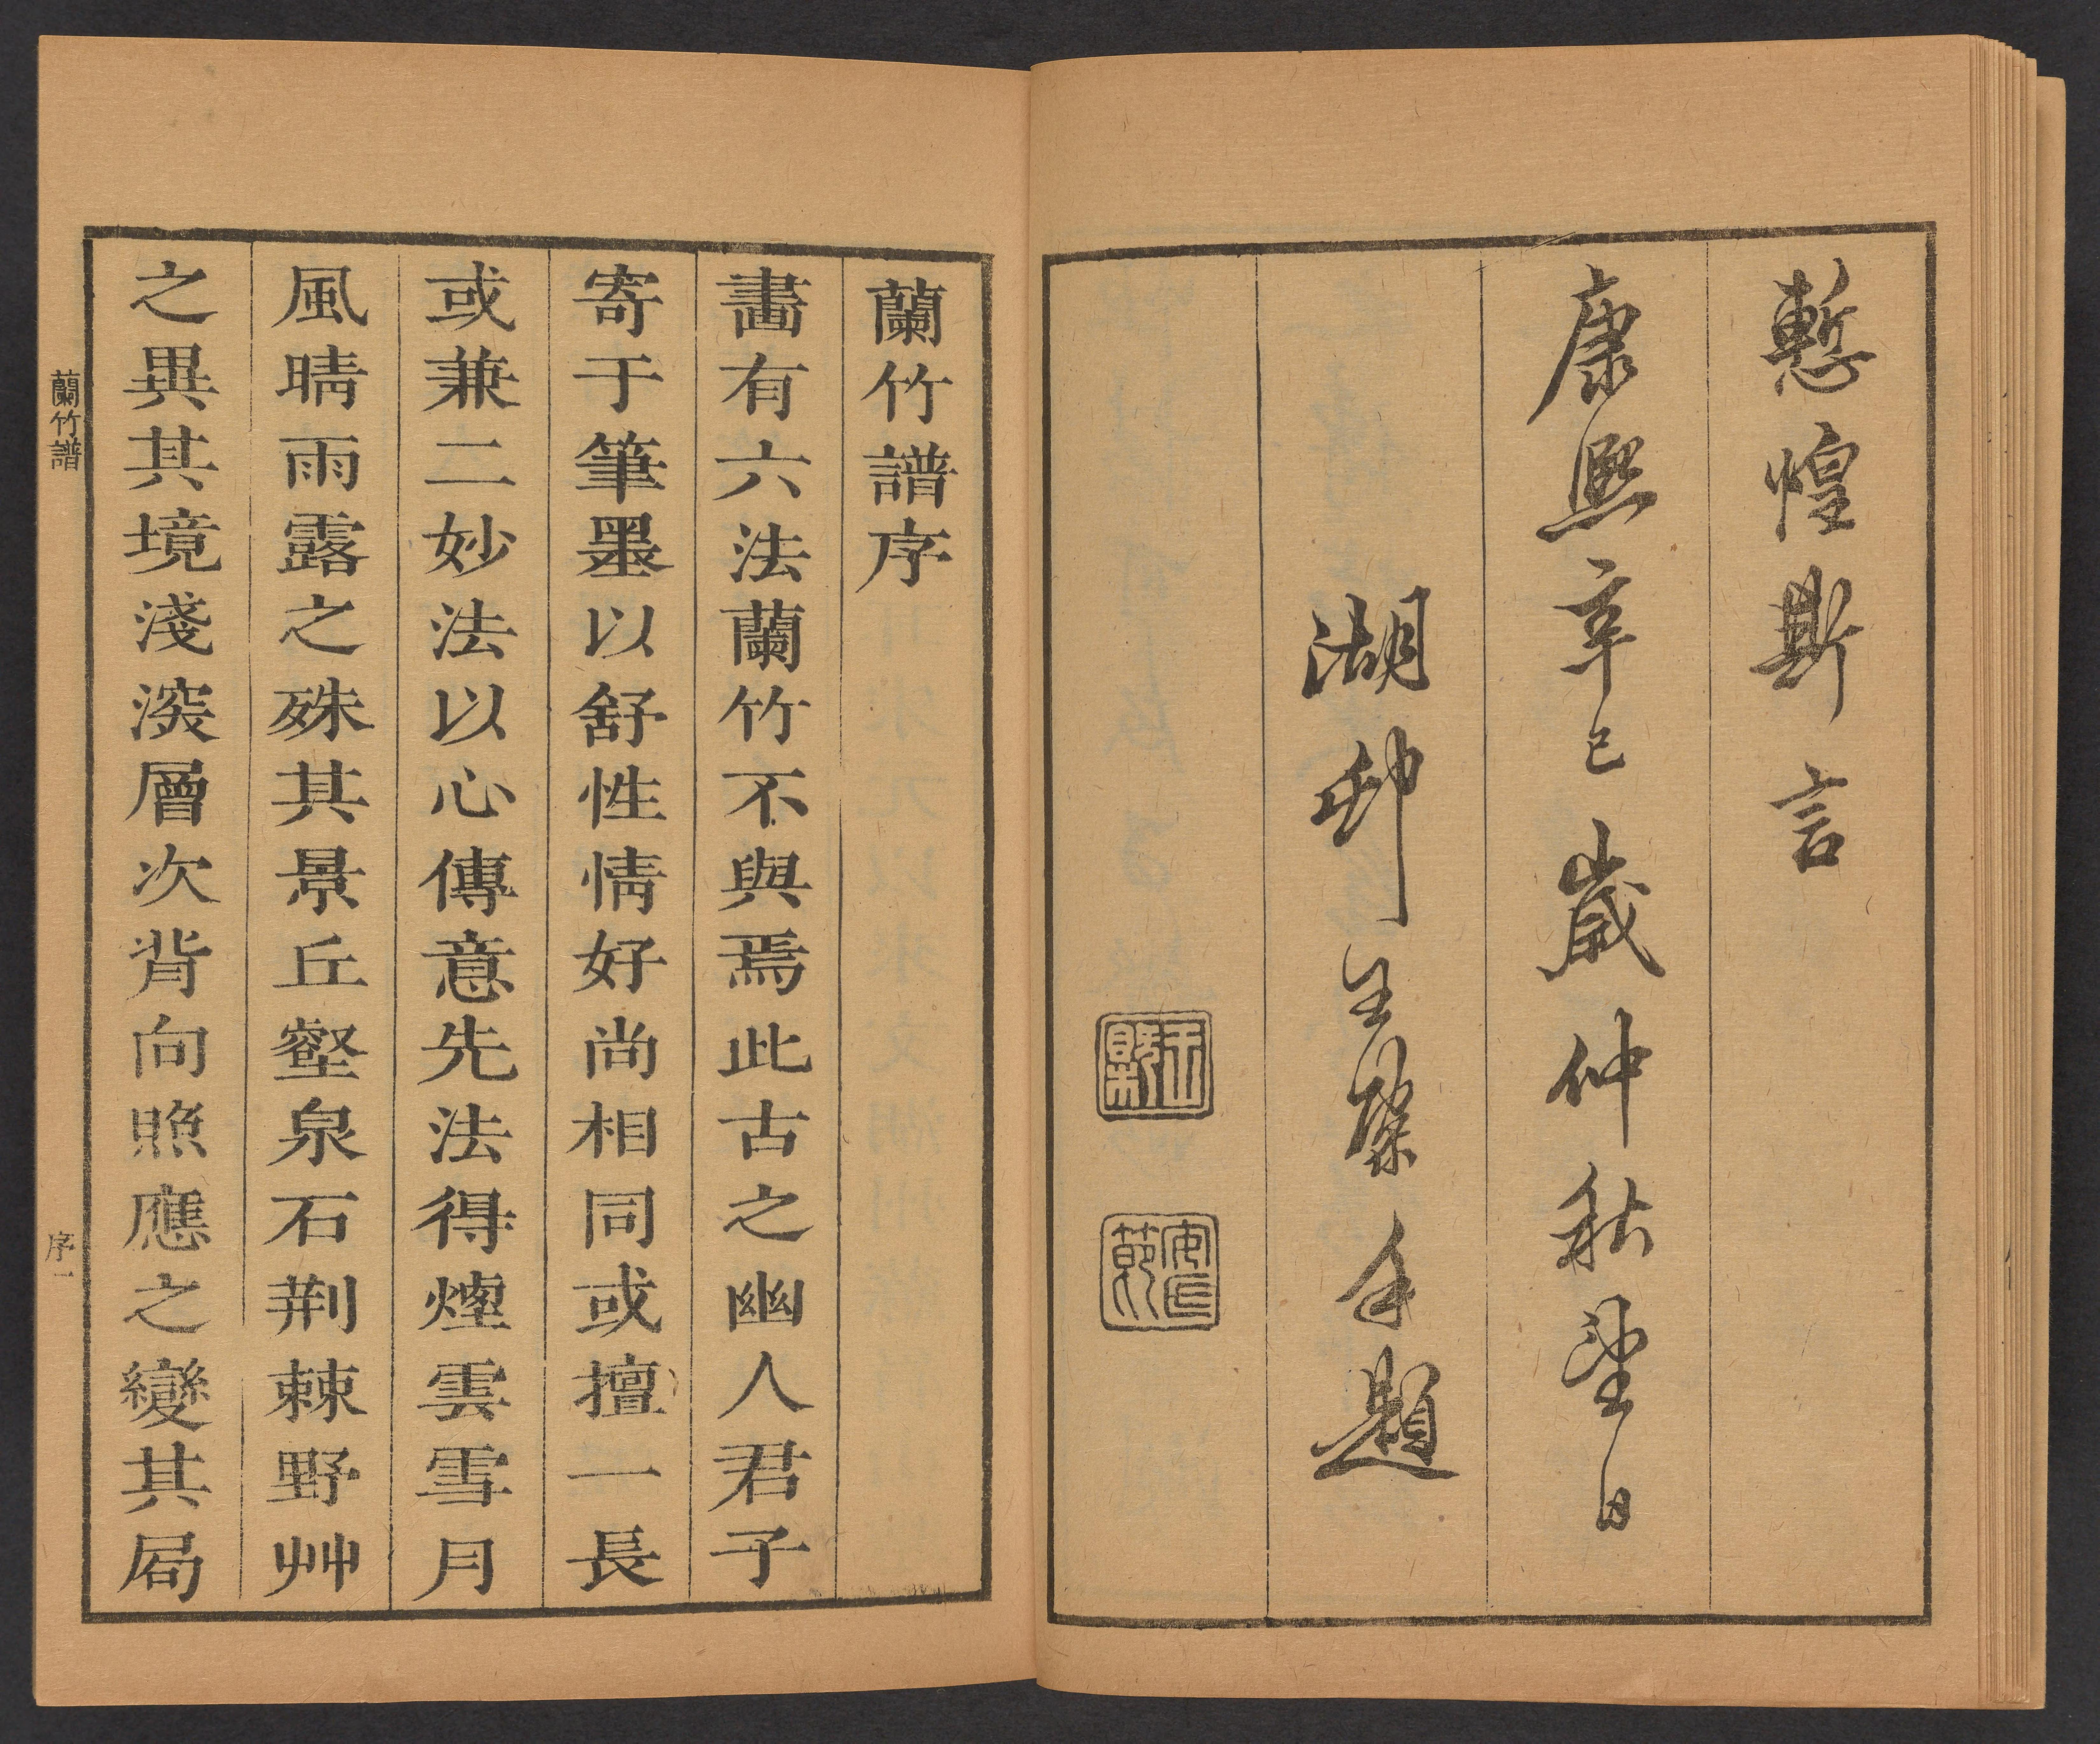 慙惶斯言
康熙辛巳歲仲秋望日
湖邨王槩手題
王槩
安節
蘭竹譜序
畵有六法蘭竹不與焉此古之幽人君子
寄于筆墨以舒性情好尚相同或擅一長
或兼二妙法以心傳意先法得煙雲雪月
風晴雨露之殊其景丘壑泉石荆棘野艸
之異其境淺深層次背向照應之變其局
蘭竹譜
序一